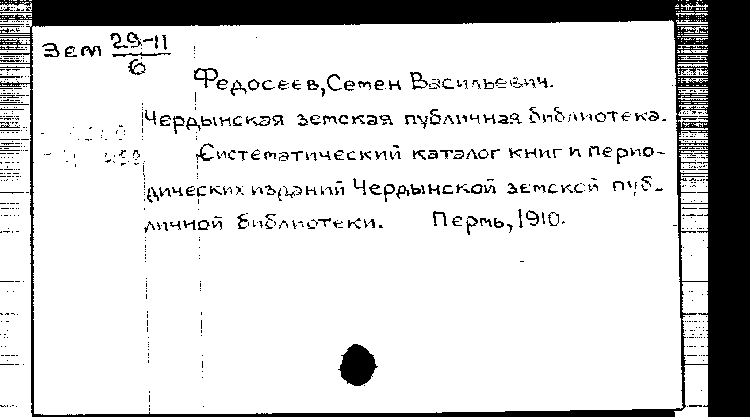 Зем 29-11
6
Федосеев, Семен Васильевич.
Чердынская земская публичная библиотека.
Систематический каталог книг и перио-
дических изданий Чердынской земской пуб-
личной библиотеки. Пермь, 1910.